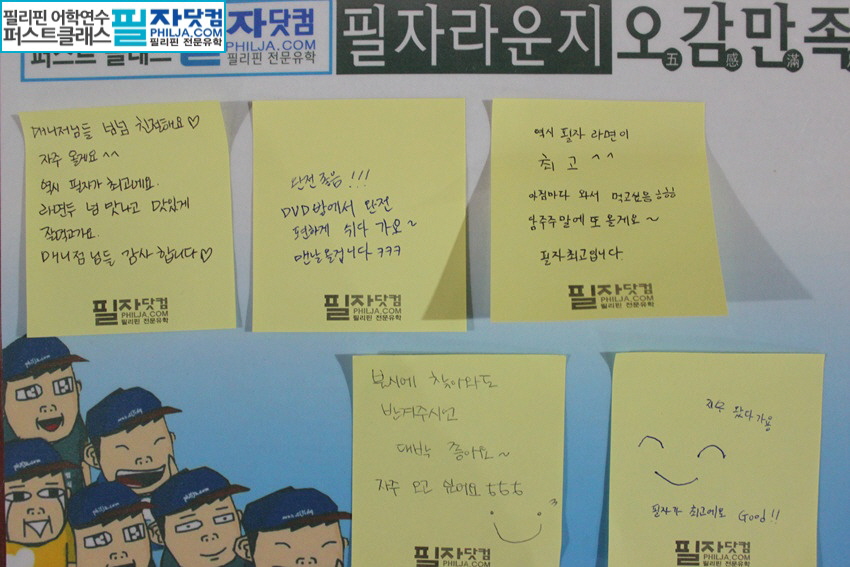 필리핀 어학연수
퍼스트클래스
필자닷컴
PHILJA.COM
필리핀 전문유학
자닷컴
PHILJA.COM
필리핀 전문유학
필자라운지 오감만족
五 感 滿
매니저님들 넘넘 친절해요♡
자주 올게요^^
역시 필자가 최고예요.
라면두 넘 맛나고 맛있게
잘먹고가요.
매니저님들 감사합니다♡
필자닷컴
PHILJA.COM
필리핀 전문유학
완전좋음!!!
DVD방에서 완전
편하게 쉬다 가요~
맨날올겁니다 ㅋㅋㅋ
필자닷컴
PHILJA.COM
필리핀 전문유학
역시 필자 라면이
최고^^
아침마다 와서 먹고싶음 ㅎㅎㅎ
담주주말에 또 올게요~
필자최고입니다
필자닷컴
PHILJA.COM
필리핀 전문유학
불시에 찾아와도
반겨주시언
대박 좋아요~
자주 오고 싶어요 ㅎㅎㅎ
필자닷컴
PHILJA.COM
자주 왔다가용
필자가 최고에요 Good!!
필자닷컴
PHILJA.COM
philja.com
philja.com
philja.com